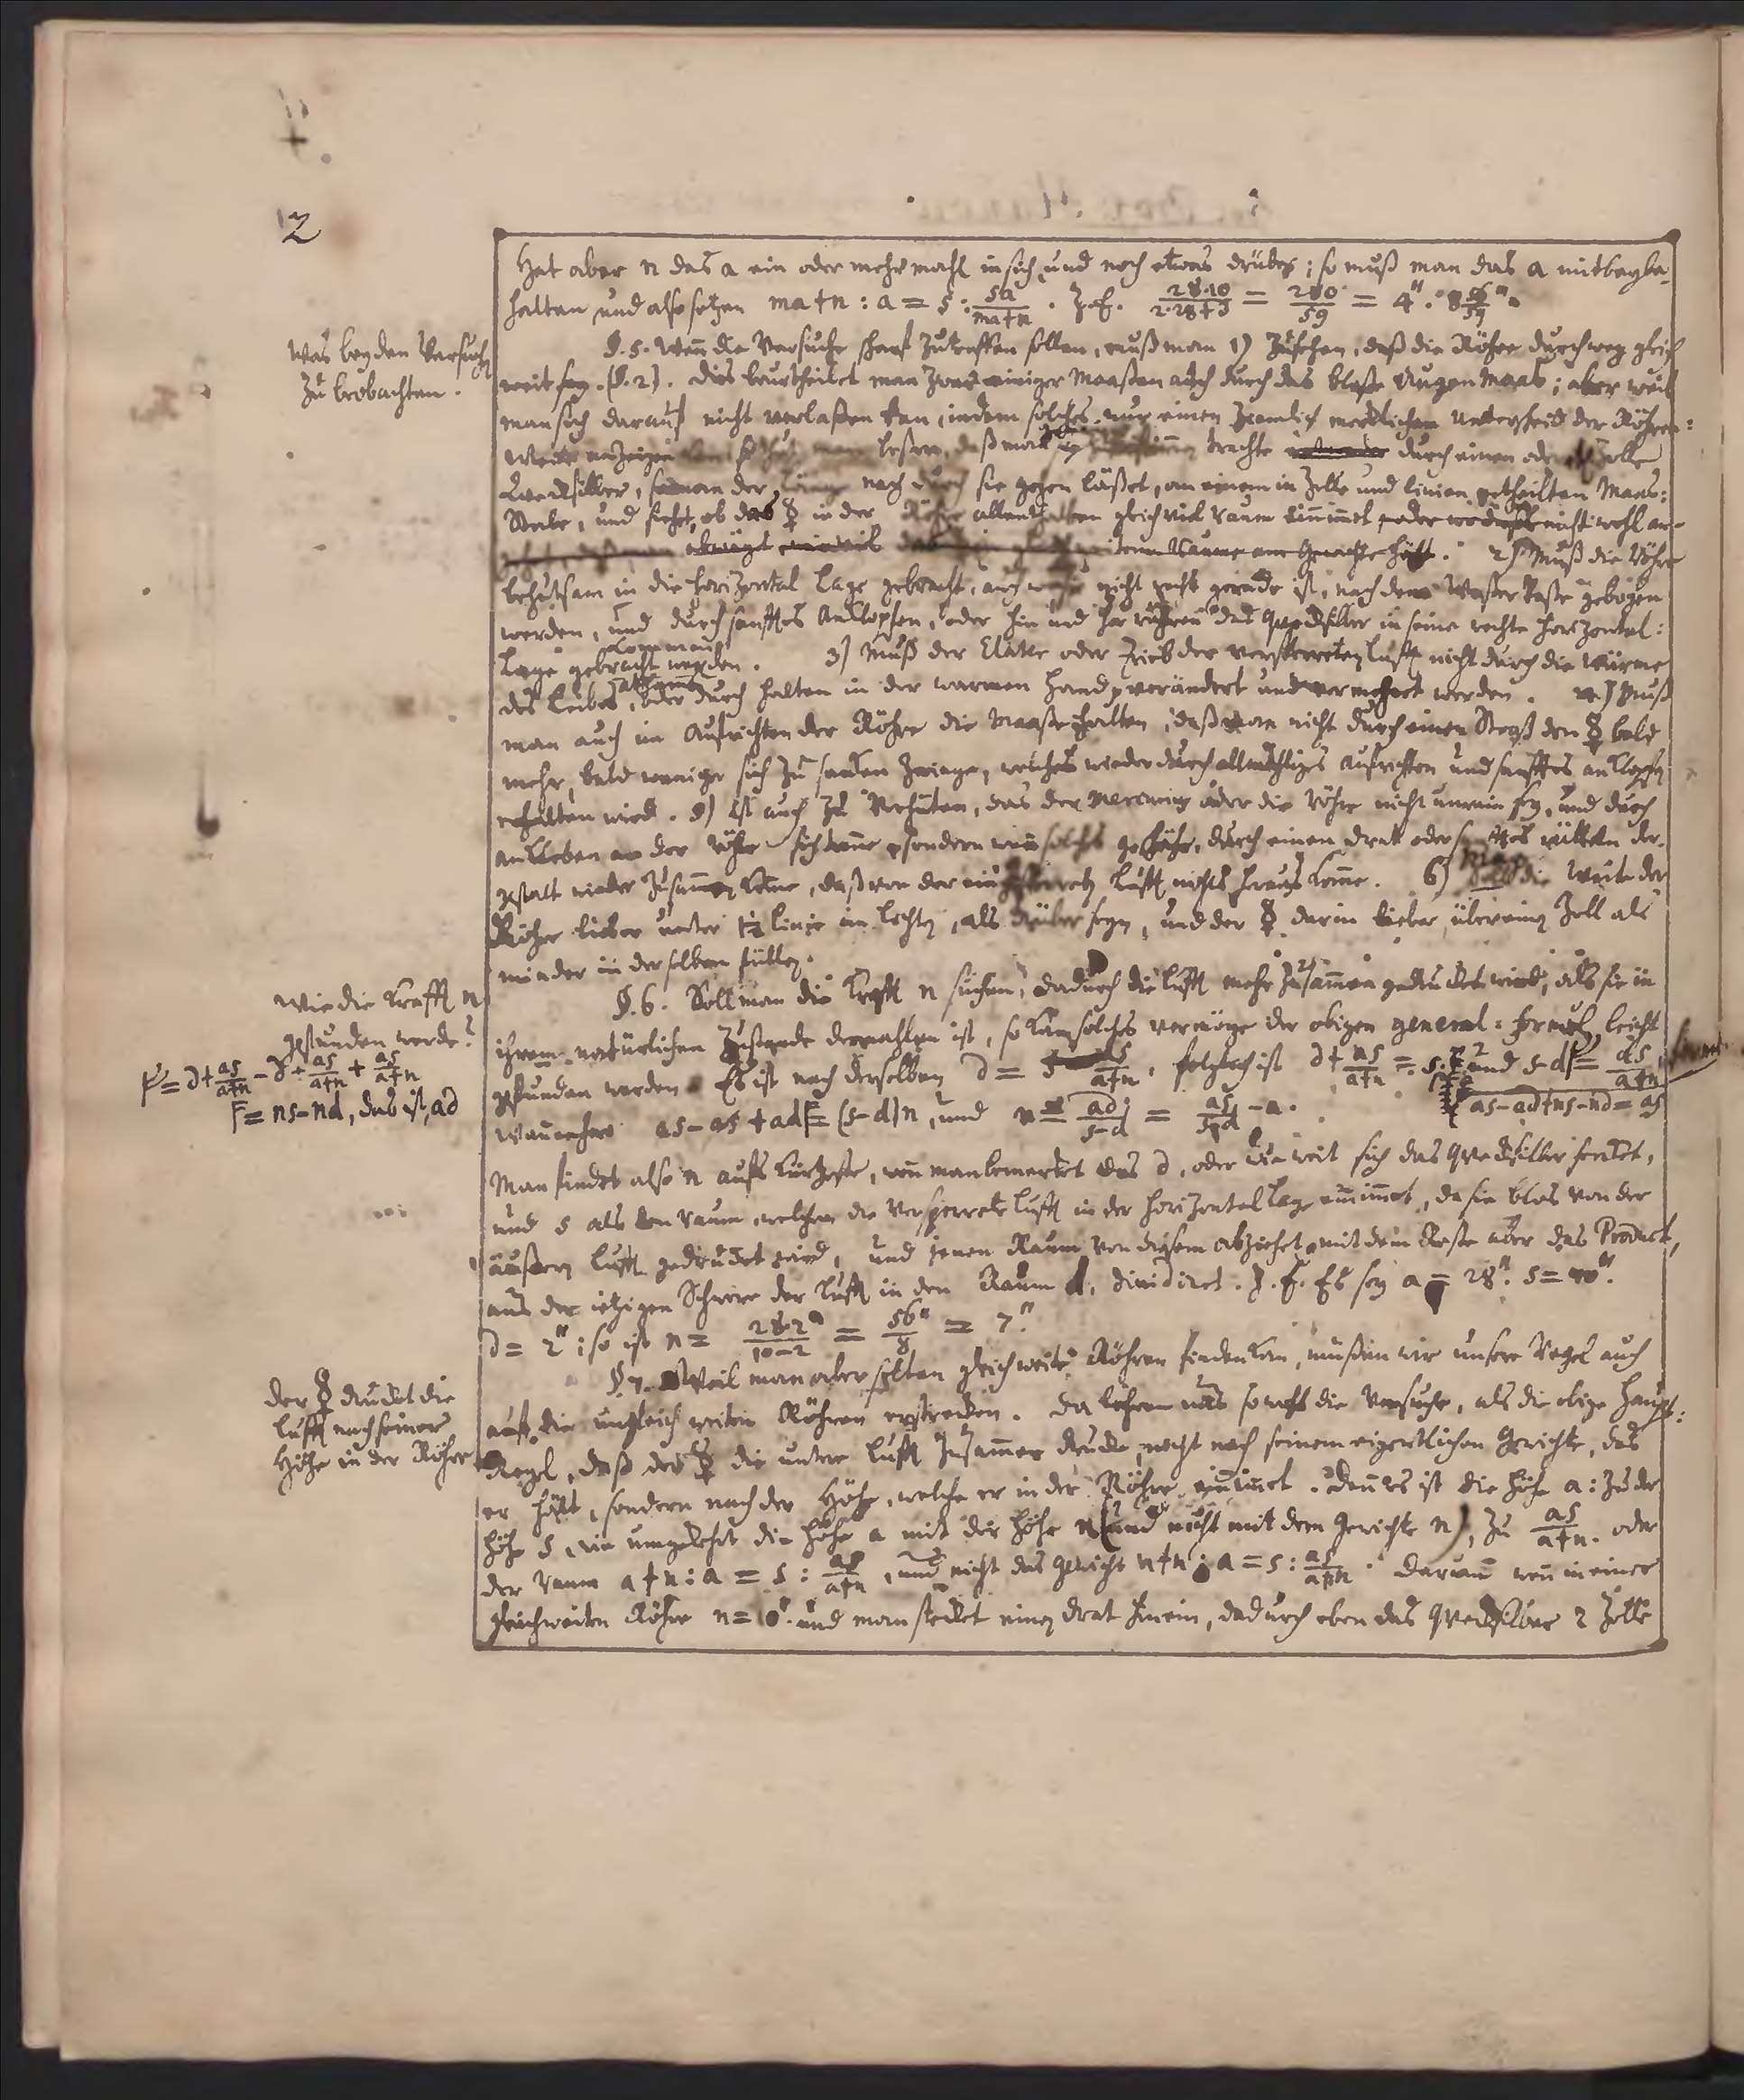 2
Hat aber n das a ein oder mehrmahl in sich, und noch etwas drüber; so muß man das a mit beybe-
halten und also setzen ma+n : a = s : sa/ma+n . Z.E. 28.10/2.28+3 = 280/59 = 4".
Was bey den Versuchen
zu beobachten.
§. 5. Wenn die Versuche scharf zutreffen sollen, muß man 1) zusehen, daß die Röhre durchweg gleich
weit sey. (§. 2). Dies beurtheilet man zwar einiger Maaßen auch durch das bloße Augenmaas; aber weil
man sich darauf nicht verlaßen kan, indem solches nur einen ziemlich mercklichen Unterscheid der Röhren=
Weite anzeigen beßer, daß man trachte durch einen oder Zolle
Quecksilber, so man der Länge nach durch sie gehen läßet, an einem in Zolle und Linien getheilten Maas=
Stabe, und siehet, ob das ☿ in der Röhre allenthalben gleich viel Raum einnimmt oder wo nicht wohl an-
2) Muß die Röhre
behutsam in die Horizontal Lage gebracht, auch wenn sie nicht recht gerade ist, nach dem Waßer Paße gebogen
werden, und durch sanfftes Anklopfen, oder hin und her rühren das Quecksilber in seine rechte Horizontal=
Lage gebracht werden. 3) Muß der Elater oder Trieb der versperreten Lufft nicht durch die Wärme
des Leibes, oder durch halten in der warmen Hand, verändert und vermehret werden. 4.) Muß
man auch im Aufrichten der Röhre die Maaße halten, daß man nicht durch einen Stoß den ☿ bald
mehr, bald weniger sich zu sencken zwinge, welches wieder durch allmähliges Aufrichten und sanfftes anklopfen
erhalten wird. 5) Ist auch zu verhüten, das der Mercurius oder die Röhre nicht unrein sey, und durch
ankleben an der Röhre sich trenne, sondern wenn solches geschähe, durch einen Drat oder sanfftes rütteln der-
gestalt wieder zusammen komme, daß von der eingesperreten Lufft nichts heraus komme. 6) Muß die Weite der
Röhre lieber unter 1½ Linie im Lichten, als drüber seyn, und der ☿ darin lieber über einen Zoll als
minder in derselben füllen.
Wie die Krafft n
gefunden werde?
F = d+as/a+n - d + as/a+n + as/a+n
F = ns-nd, das ist, ad
§. 6. Soll man die Krafft n suchen, dadurch die Lufft mehr zusammen gedrucket wird, als sie in
ihrem natürlichen Zustande dermahlen ist, so kan solches vermöge der obigen general=Formul leicht
gefunden werden. Es ist nach derselben d = s - as/a+n, folglich ist d+as/a+n = s. und s-d = as/a+n
as-ad+ns-nd = as
Wannenhero as-as+ad = (s-d)n, und n = ad/s-d = as/s-d - a.
Man findet also n aufs kürtzeste, wenn man bemercket das d, oder wie weit sich das Quecksilber sencket,
und s als den Raum, welchen die versperrete Lufft in der Horizontal Lage einnimmet, da sie blos von der
äußern Lufft gedrucket wird, und jenen Raum von diesem abziehet, mit dem Reste aber das Product,
aus der jetzigen Schwere der Lufft in den Raum d, dividiret. Z. E. Es sey a = 28". s = 10".
d = 2"; so ist n = 28.2"/10-2 = 56"/8 = 7".
Der ☿ drucket die
Lufft nach seiner
Höhe in der Röhre
§. 7. Weil man aber selten gleichweite Röhren finden kan, müßen wir unsere Regel auch
auf die ungleich weiten Röhren erstrecken. Da lehren uns so wohl die Versuche, als die obige Haupt=
Regel, daß der ☿ die untere Lufft zusammen drucke, nicht nach seinem eigentlichen Gewichte, das
er hält, sondern nach der Höhe, welche er in der Röhre einnimmet. Denn es ist die Höhe a : zu der
Höhe s, wie umgekehrt die Höhe a mit der Höhe n (und nicht mit dem Gewichte n), zu as/a+n. oder
der Raum a+n : a = s : as/a+n, und nicht das Gewicht n+n : a = s : as/a+n. Darum wenn in einer
gleichweiten Röhre n = 10". und man stecket einen Drat hinein, dadurch eben das Quecksilber 2 Zolle